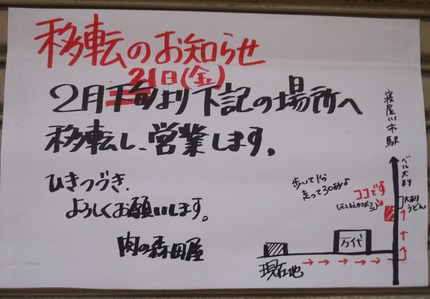 移転のお知らせ
21日(金)
2月下旬より下記の場所へ
移転し、営業します。
ひきつづき、
よろしくお願いします。
肉の森田屋
寝屋川市駅
ベル大利
歩いて1分
走って30秒♪
ココです
大利
うどん
万代
現在地